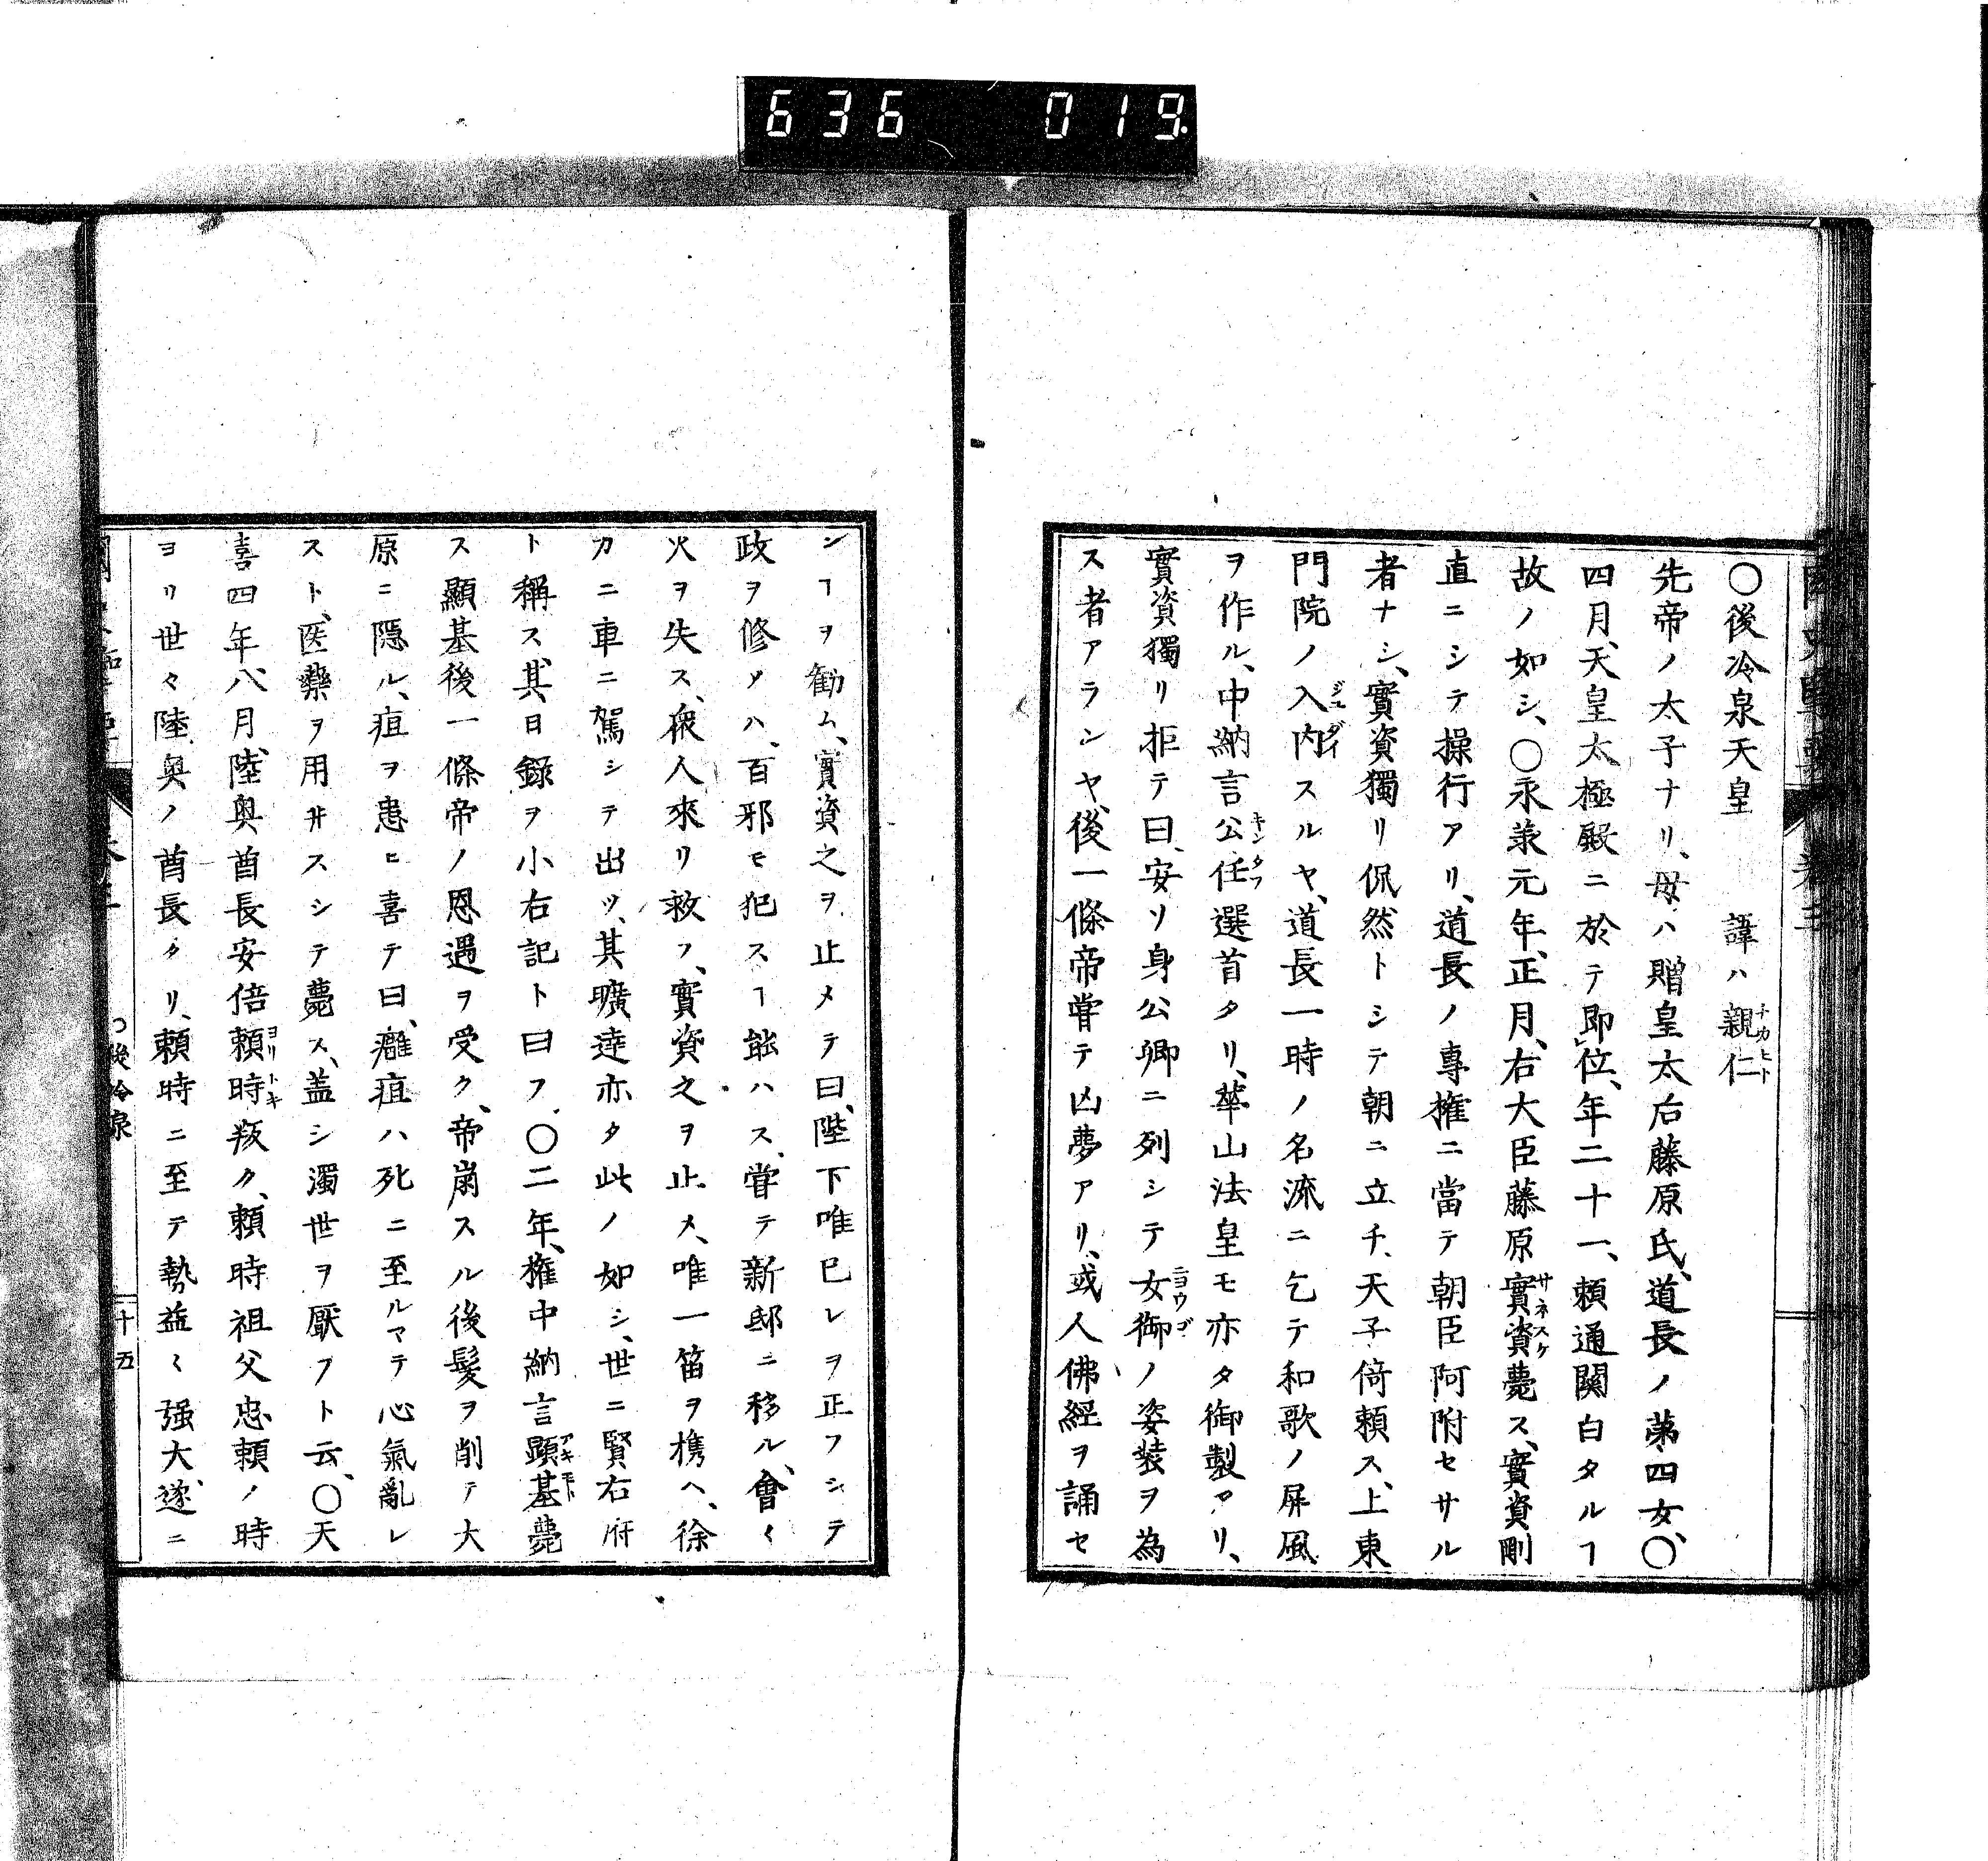 636 019.
〇後冷泉天皇 諱ハ親仁チカヒト
先帝ノ太子ナリ、母ハ贈皇太后藤原氏、道長ノ苐四女、〇
四月、天皇太極殿ニ於テ即位、年二十一、頼通関白タルヿ
故ノ如シ、〇永承元年、正月、右大臣藤原實資サネスケ薨ス、實資剛
直ニシテ操行アリ、道長ノ専権ニ當テ朝臣阿附セサル
者ナシ、實資獨リ侃然トシテ朝ニ立チ、天子倚頼ス、上東
門院ノ入内ジユダイスルヤ、道長一時ノ名流ニ乞テ和歌ノ屏風
ヲ作ル、中納言公任キンタフ選首タリ、華山法皇モ亦タ御製アリ、
實資獨リ拒テ曰、安ソ身公卿ニ列シテ女御ニヨウゴノ姿装ヲ為
ス者アランヤ、後一條帝甞テ凶夢アリ、或人佛経ヲ誦セ
ンヿヲ勧ム、實資之ヲ止メテ曰、陛下唯已レヲ正フシテ
政ヲ修メハ、百邪モ犯スヿ能ハス、甞テ新邸ニ移ル、會〱
火ヲ失ス、衆人來リ救フ、實資之ヲ止メ、唯一笛ヲ携ヘ、徐
カニ車ニ駕シテ出ツ、其曠達亦タ此ノ如シ、世ニ賢右府
ト稱ス、其日録ヲ小右記ト曰フ、〇二年、権中納言顕基アキモト薨
ス顯基後一條帝ノ恩遇ヲ受ク、帝崩スル後髪ヲ削テ大
原ニ隠ル、疽ヲ患ヒ喜テ曰、癰疽ハ死ニ至ルマテ心氣亂レ
スト、医藥ヲ用井スシテ薨ス、盖シ濁世ヲ厭フト云、〇天
喜四年、八月、陸奥酋長安倍頼時ヨリトキ叛ク、頼時祖父忠頼ノ時
ヨリ世々陸奥ノ酋長タリ、頼時ニ至テ勢益〱強大、遂ニ
〇後冷泉 十五